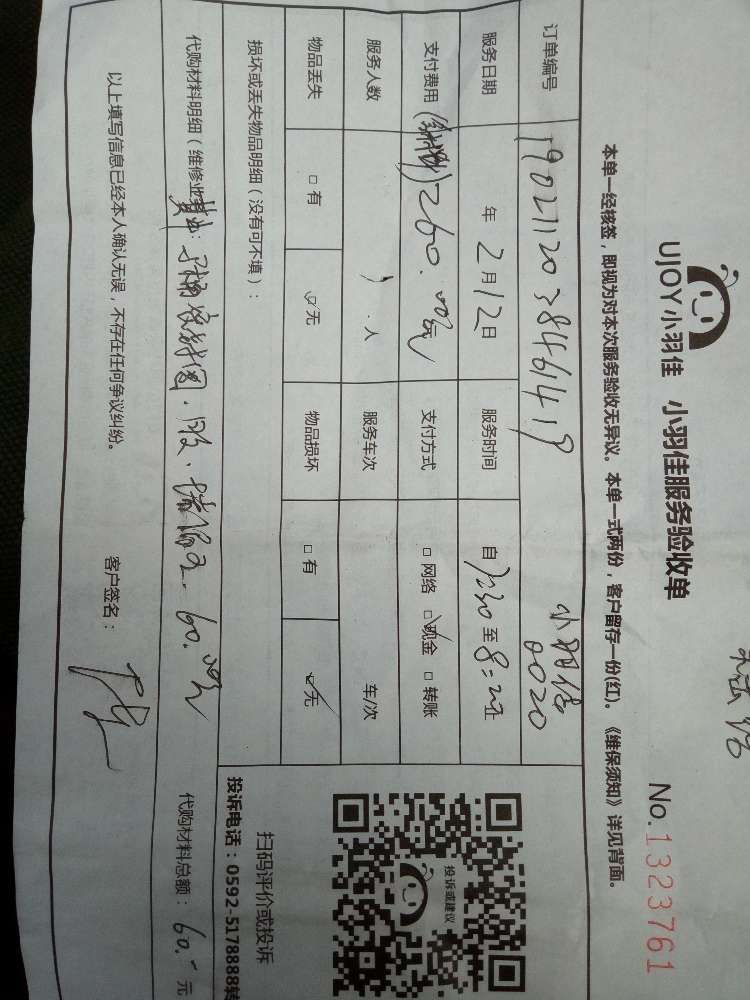 UJOY小羽佳 小羽佳服务验收单
No.1323761
本单一经核签,即视为对本次服务验收无异议。本单一式两份,客户留存一份(红)。《维保须知》详见背面。
订单编号 1902112038461419 小羽佳 0020
服务日期 年 2月12日 服务时间 自 至 止
支付费用 260.00元 支付方式 □网络 ☑现金 □转账
服务人数 1.人 服务车次 车/次
物品丢失 □有 ☑无 物品损坏 □有 ☑无
损坏或丢失物品明细(没有可不填):
代购材料明细(维修业务): 60.00元
代购材料总额:60.-元
以上填写信息已经本人确认无误,不存在任何争议纠纷。
客户签名:
投诉或建议
扫码评价或投诉
投诉电话:0592-5178888转